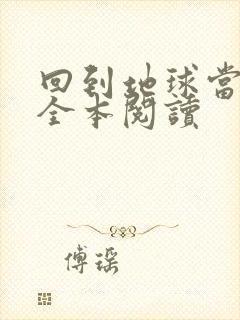 回到地球當
全本閱讀
傅瑤